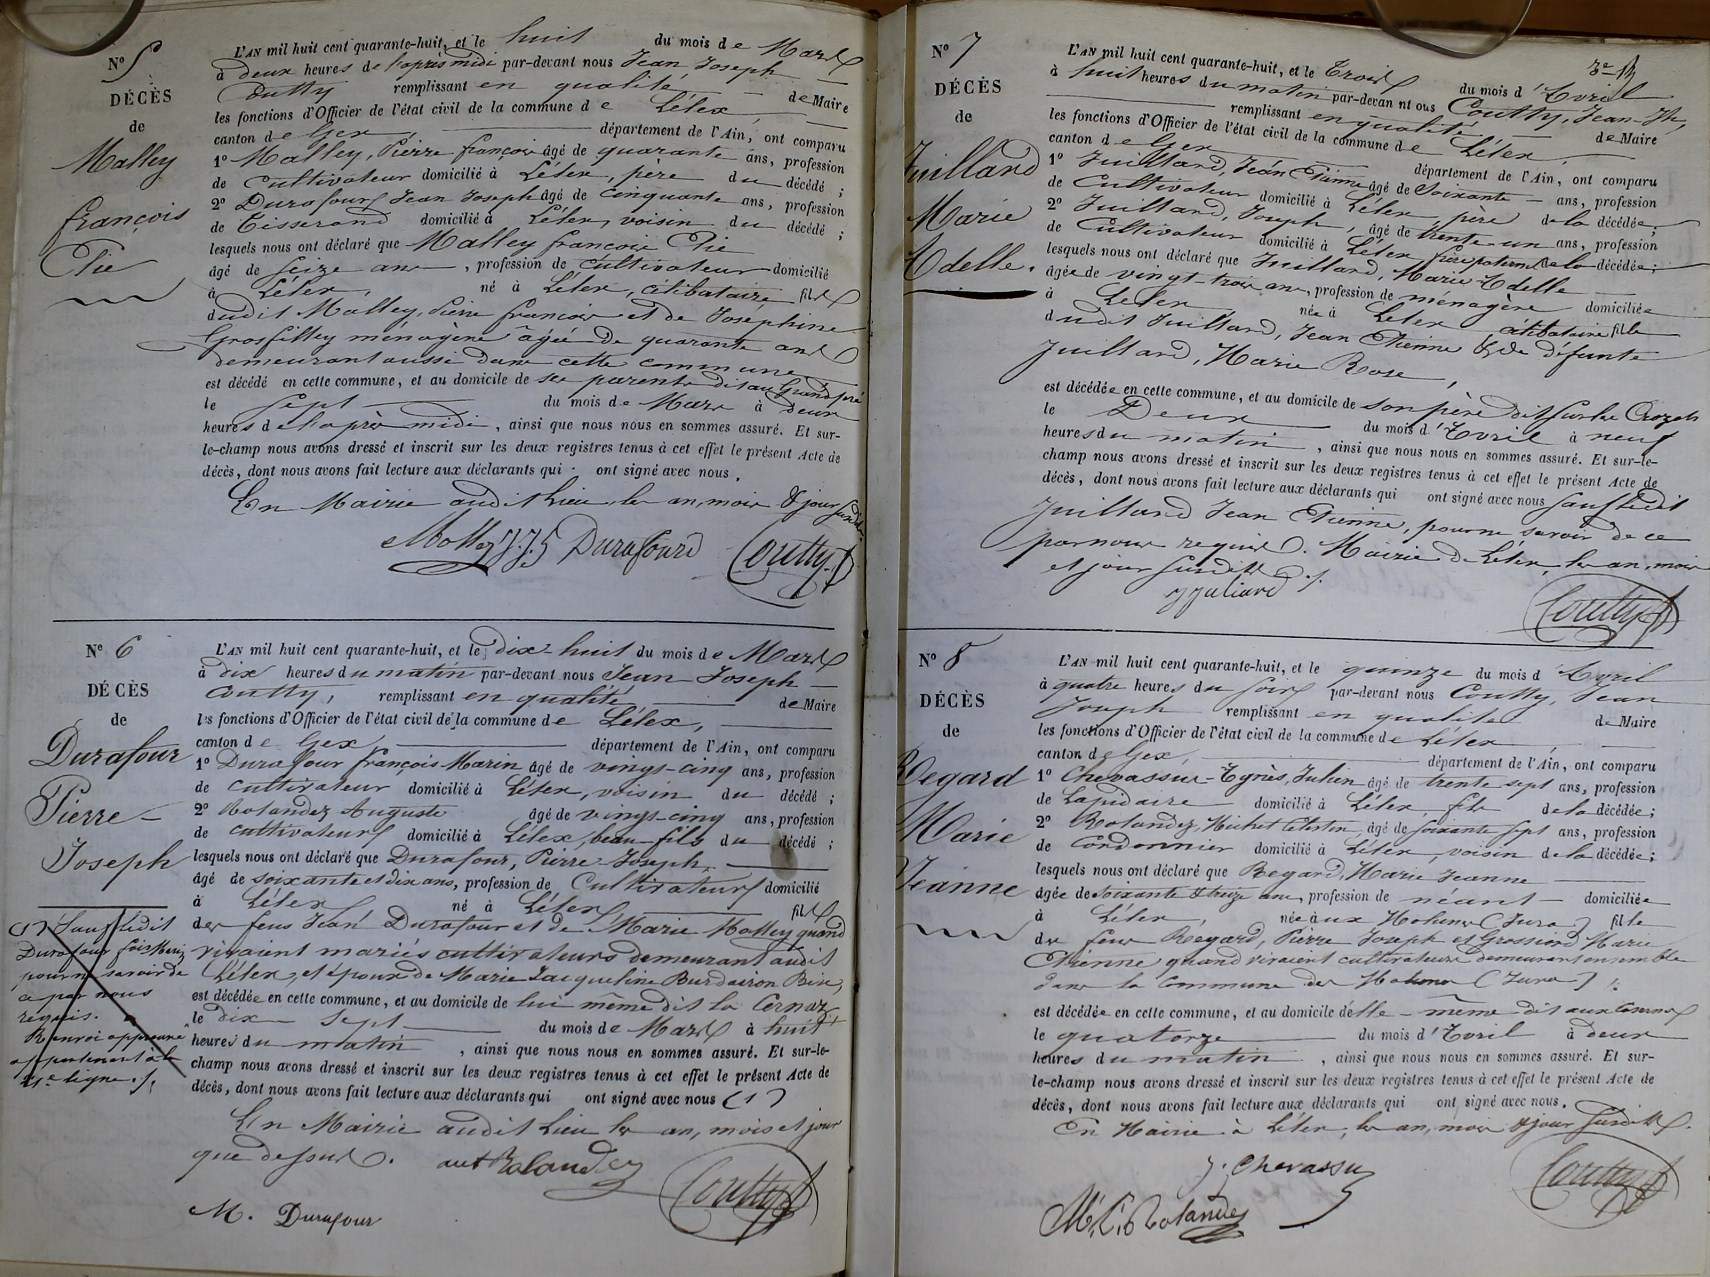 N° 5
DÉCÈS
de
Malley
françois
Pie
L'AN mil huit cent quarante-huit, et le huit du mois de Mars
à deux heures de l'après midi par-devant nous Jean Joseph
Coutty remplissant en qualité de Maire
les fonctions d'Officier de l'état civil de la commune de Lélex
canton de Gex département de l'Ain, ont comparu
1° Malley, Pierre françois âgé de quarante ans, profession
de cultivateur domicilié à Lélex, père du décédé ;
2° Durafour Jean Joseph âgé de cinquante ans, profession
de Tisserand domicilié à Lélex, voisin du décédé ;
lesquels nous ont déclaré que Malley françois Pie
âgé de seize ans, profession de cultivateur domicilié
à Lélex, né à Lélex, célibataire fils
dudit Malley, Pierre françois et de Joséphine
Grosfilley ménagère âgée de quarante ans
demeurant aussi dans cette commune
est décédé en cette commune, et au domicile de ses parents dit au Grand pré
le sept du mois de Mars à deux
heures de l'après midi, ainsi que nous nous en sommes assuré. Et sur-
le-champ nous avons dressé et inscrit sur les deux registres tenus à cet effet le présent Acte de
décès, dont nous avons fait lecture aux déclarants qui ont signé avec nous.
En Mairie audit Lieu, les an, mois & jour susdits.
Malley J. J. Durafourd Coutty
N° 6
DÉCÈS
de
Durafour
Pierre-
Joseph
L'AN mil huit cent quarante-huit, et le dix-huit du mois de Mars
à dix heures du matin par-devant nous Jean Joseph
Coutty, remplissant en qualité de Maire
les fonctions d'Officier de l'état civil de la commune de Lélex,
canton de Gex, département de l'Ain, ont comparu
1° Durafour françois Marin âgé de vingt-cinq ans, profession
de cultivateur domicilié à Lélex, voisin du décédé ;
2° Rolandez Auguste âgé de vingt-cinq ans, profession
de cultivateur domicilié à Lélex, beau-fils du décédé ;
lesquels nous ont déclaré que Durafour, Pierre Joseph,
âgé de soixante et dix ans, profession de Cultivateur domicilié
à Lélex né à Lélex fils
des feus Jean Durafour et de Marie Malley quand
vivaient mariés cultivateurs demeurant audit
Lélex, et époux de Marie Jacqueline Burdairon
est décédée en cette commune, et au domicile de lui même dit la Cernaz
le dix sept du mois de Mars à huit
heures du matin, ainsi que nous nous en sommes assuré. Et sur-le-
champ nous avons dressé et inscrit sur les deux registres tenus à cet effet le présent Acte de
décès, dont nous avons fait lecture aux déclarants qui ont signé avec nous (1)
(1) Sauf ledit
Durafour fçois Marin
pour ne savoir de
ce par nous
requis.
Renvoi approuvé
appartenant à la
ligne.
En Mairie audit Lieu les an, mois et jour
que dessus. aut Rolandez Coutty
M. Durafour
N° 7
DÉCÈS
de
Juilland
Marie
Adelle.
L'AN mil huit cent quarante-huit, et le Trois du mois d'Avril
à huit heures du matin par-devant nous Coutty, Jean-Jh,
remplissant en qualité de Maire
les fonctions d'Officier de l'état civil de la commune de Lélex,
canton de Gex département de l'Ain, ont comparu
1° Juilland, Jean Etienne âgé de Soixante ans, profession
de Cultivateur domicilié à Lélex, père de la décédée ;
2° Juilland, Joseph, âgé de trente un ans, profession
de Cultivateur domicilié à Lélex, de la décédée ;
lesquels nous ont déclaré que Juilland, Marie Adelle
âgée de vingt-trois ans, profession de ménagère domiciliée
à Lélex née à Lélex célibataire fille
dudit Juilland, Jean Etienne & de défunte
Juilland, Marie Rose,
est décédée en cette commune, et au domicile de son père dit Sur les Crozets
le Deux du mois d'Avril à neuf
heures du matin, ainsi que nous nous en sommes assuré. Et sur-le-
champ nous avons dressé et inscrit sur les deux registres tenus à cet effet le présent Acte de
décès, dont nous avons fait lecture aux déclarants qui ont signé avec nous sauf ledit
Juilland Jean Etienne, pour ne savoir de ce
par nous requis. Mairie de Lélex, les an, mois
et jour susdits.
J Juliard Coutty
N° 8
DÉCÈS
de
Regard
Marie
Jeanne
L'AN mil huit cent quarante-huit, et le quinze du mois d'Avril
à quatre heures du soir par-devant nous Coutty, Jean
Joseph remplissant en qualité de Maire
les fonctions d'Officier de l'état civil de la commune de Lélex,
canton de Gex, département de l'Ain, ont comparu
1° Chevassu-Agnès, Julien âgé de trente sept ans, profession
de Lapidaire domicilié à Lélex, fils de la décédée ;
2° Rolandez, Michel Célestin, âgé de soixante sept ans, profession
de Cordonnier domicilié à Lélex, voisin de la décédée ;
lesquels nous ont déclaré que Regard, Marie Jeanne
âgée de soixante & treize ans, profession de néant domiciliée
à Lélex, née aux Molunes (Jura) fille
des feus Regard, Pierre Joseph et Grossiord Marie
Etienne quand vivaient cultivateurs demeurant ensemble
dans la commune des Molunes (Jura)
est décédée en cette commune, et au domicile d'elle-même dit aux
le quatorze du mois d'Avril à deux
heures du matin, ainsi que nous nous en sommes assuré. Et sur-
le-champ nous avons dressé et inscrit sur les deux registres tenus à cet effet le présent Acte de
décès, dont nous avons fait lecture aux déclarants qui ont signé avec nous.
En Mairie à Lélex, les an, mois & jour susdits.
J. Chevassu Coutty
M. C. Rolandez